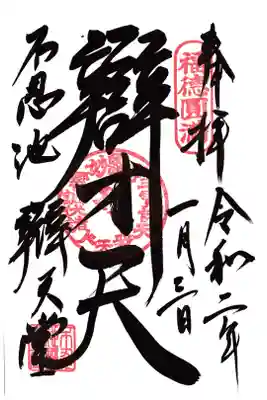 奉拝
令和二年
一月三日
福徳圓満
辯才天
不忍池
辯天堂